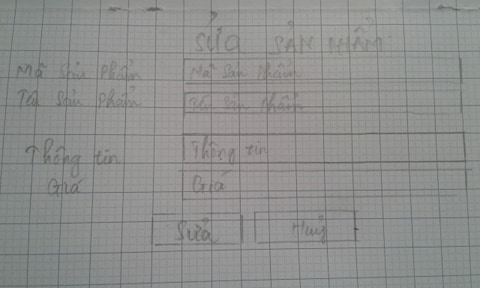 SỬA SẢN PHẨM
Mã Sản Phẩm Mã Sản Phẩm
Tên Sản Phẩm Tên Sản Phẩm
Thông tin Thông tin
Giá Giá
Sửa Huỷ